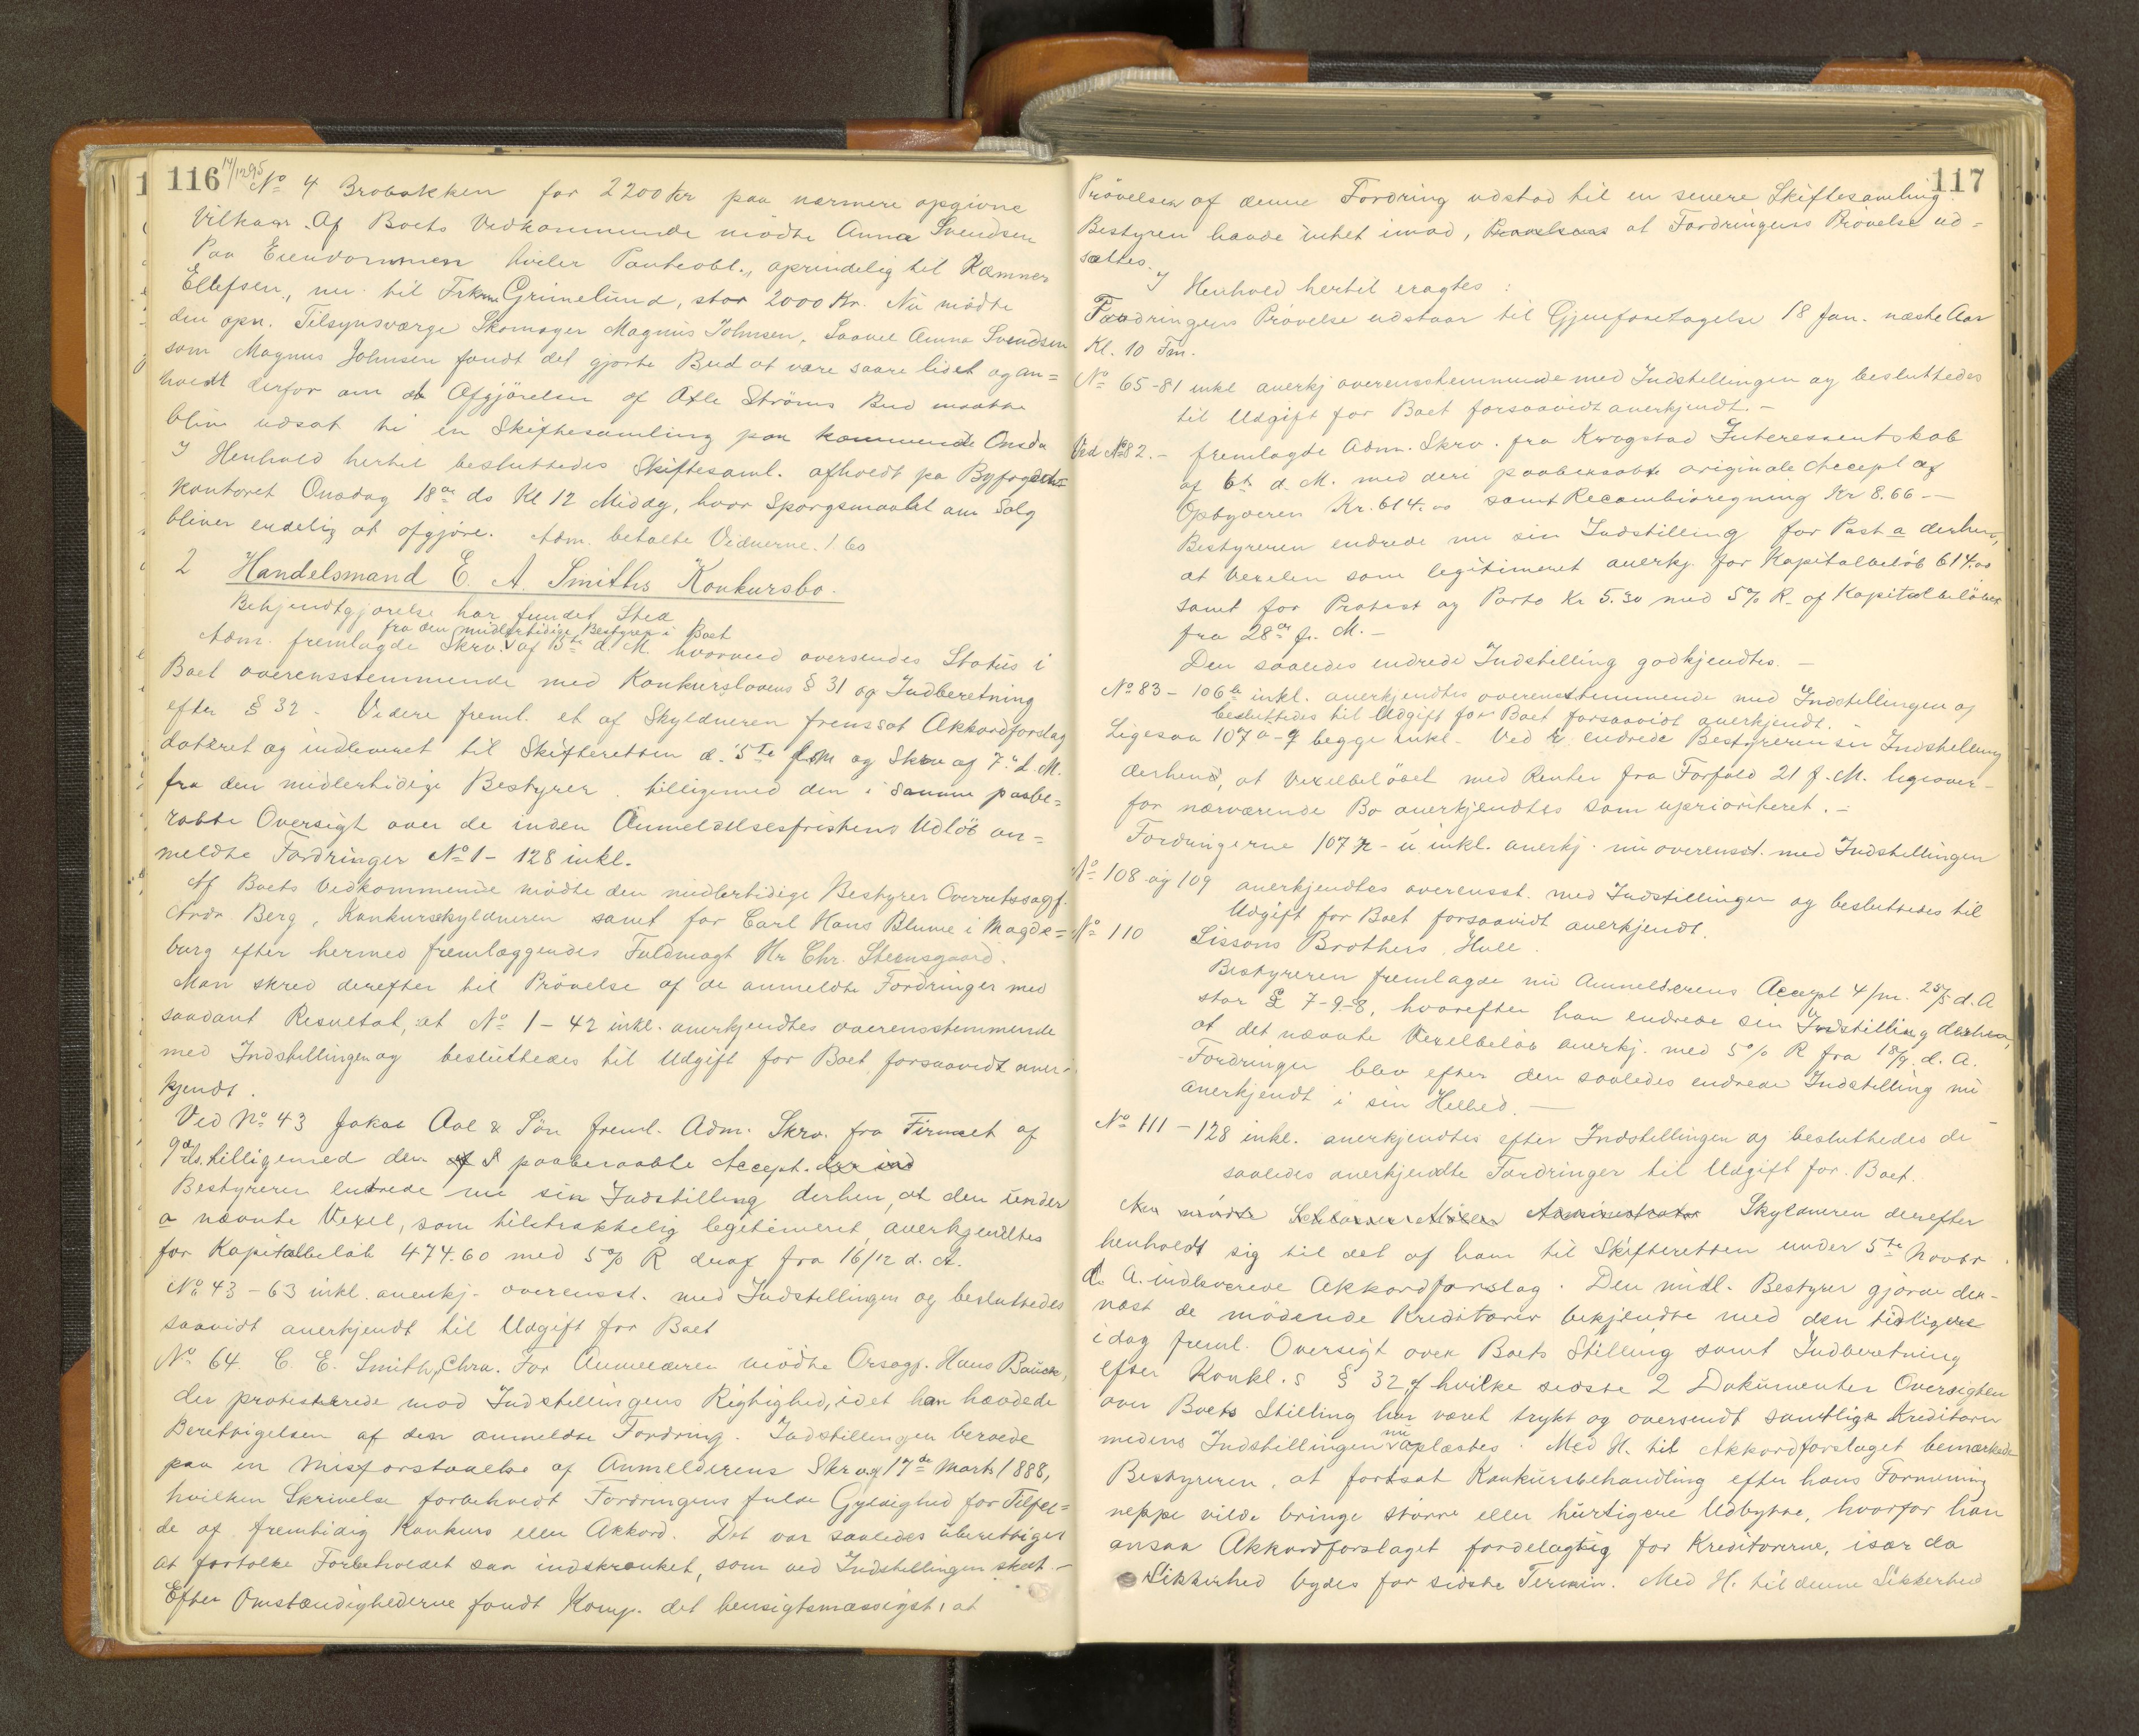 116
14/12 95
No 4 Brobakken for 2200 Kr paa nærmere opgivne
Vilkaar. Af Boets Vedkommende mødte Anna Svendsen
Paa Eiendommen hviler Panteobl., oprindelig til Kæmner
Ellefsen, nu til Frkn Grimelund, stor 2000 Kr. Nu mødte
den opn. Tilsynsværge Skomager Magnus Johnsen. Saavel Anna Svendsen
som Magnus Johnsen fandt det gjorte Bud at være saare lidet og an=
holdt derfor om at Afgjørelsen af Atle Strøms Bud maatte
blive udsat til en Skiftesamling paa kommende Onsda
I Henhold hertil besluttedes Skiftesaml. afholdt pa Byfogdens
Kontoret Onsdag 18de ds Kl 12 Middag, hvor Spørgsmaalet om Salg
bliver endelig at afgjøre. Adm. betalte Vidnerne. 1 60
2 Handelsmand E. A. Smiths Konkursbo.
Bekjendtgjørelse har fundet Sted
fra den midlertidige Bestyrer i Boet
Adm. fremlagde Skrv. af 13de d. M. hvorved oversendes Status i
Boet overensstemmende med Konkurslovens § 31 og Indberetning
efter § 32. Videre freml. et af Skyldneren fremsat Akkordforslag
dateret og indleveret til Skifteretten d. 5te f. M og Skrv af 7. d. M.
fra den midlertidige Bestyrer tilligemed den i samme paabe=
raabte Oversigt over de inden Anmeldelsesfristens Udløb an=
meldte Fordringer No 1 - 128 inkl.
Af Boets Vedkommende mødte den midlertidige Bestyrer Overretssagf.
Berg, Konkursskyldneren samt for Carl Hans Blume i Magde=
burg efter hermed fremlæggendes Fuldmagt Hr Chr. Steensgaard.
Man skred derefter til Prøvelse af de anmeldte Fordringer med
saadant Resultat, at No 1 - 42 inkl. anerkjendtes overensstemmende
med Indstillingen og besluttedes til Udgift for Boet forsaavidt aner-
kjendt.
Ved No 43 Jakob Aal & Søn freml. Adm. Skrv. fra Firmaet af
9de ds. tilligemed den paaberaabte Accept.
Bestyreren endrede nu sin Indstilling derhen, at den under
a nævnte Vexel, som tilstrækkelig legitimeret, anerkjendtes
for Kapitalbeløb 474.60 med 5% R deraf fra 16/12 d. A.
No 43 - 63 inkl. anerkj. overensst. med Indstillingen og besluttedes
saavidt anerkjendt til Udgift for Boet
No 64. C. E. Smith, Chra. For Anmelderen mødte Orsagf. Hans Bauck,
der protesterede mod Indstillingens Rigtighed, idet han hævdede
Berettigelsen af den anmeldte Fordring. Indstillingen beroede
paa en Misforstaaelse af Anmelderens Skrv af 17de Marts 1888,
hvilken Skrivelse forbeholdt Fordringens fulde Gyldighed for Tilfæl=
de af fremtidig Konkurs eller Akkord. Det var saaledes uberettiget
at fortolke Forbeholdet saa indskrænket, som ved Indstillingen skeet.-
Efter Omstændighederne fandt Komp. det hensigtsmæssigst, at
117
Prøvelsen af denne Fordring udstod til en senere Skiftesamling.
Bestyren havde intet imod, at Fordringens Prøvelse ud=
sættes.
I Henhold hertil eragtes:
Fordringens Prøvelse udstaar til Gjenforetagelse 18 Jan. næste Aar
Kl. 10 Fm.
No 65-81 inkl anerkj overensstemmende med Indstillingen og besluttedes
til Udgift for Boet forsaavidt anerkjendt. -
Ved No 82. - fremlagde Adm. Skrv. fra Krogstad Interessentskab
af 6te d. M. med deri paaberaabte originale Accept af
Opbyderen Kr. 614.00 samt Recambioregning Kr 8.66 -
Bestyreren endrede nu sin Indstilling for Post a derhen,
at Vexelen som legitimeret anerkj. for Kapitalbeløb 614.00
samt for Protest og Porto Kr 5.30 med 5% R. af Kapitalbeløbet
fra 28de f. M. -
Den saaledes endrede Indstilling godkjendtes. -
No 83 - 106b inkl. anerkjendtes overensstemmende med Indstillingen og
besluttedes til Udgift for Boet forsaavidt anerkjendt.
Ligesaa 107 a - q begge inkl. Ved r endrede Bestyreren sin Indstilling
derhend, at Vexelbeløbet med Renter fra Forfald 21 f. M. ligeover-
for nærværende Bo anerkjendtes som uprioriteret. -
Fordringerne 107 r - u inkl. anerkj. nu overensst. med Indstillingen
No 108 og 109 anerkjendtes overensst. med Indstillingen og besluttedes til
Udgift for Boet forsaavidt anerkjendt.
No 110 Sissons Brothers, Hull.
Bestyreren fremlagde nu Anmelderens Accept 4/m. 25/5 d. A
stor £ 7-9-8, hvorefter han endrede sin Indstilling derhen,
at det nævnte Vexelbeløb anerkj. med 5% R fra 18/9 d. A.
Fordringen blev efter den saaledes endrede Indstilling nu
anerkjendt i sin Helhed. -
No 111 - 128 inkl. anerkjendtes efter Indstillingen og besluttedes de
saaledes anerkjendte Fordringer til Udgift for Boet.
Skyldneren derefter
henholdt sig til det af ham til Skifteretten under 5te Novbr
d. A. indleverede Akkordforslag. Den midl. Bestyrer gjorde der-
næst de mødende Kreditorer bekjendte med den tidligere
idag freml. Oversigt over Boets Stilling samt Indberetning
efter Konkl.s § 32, af hvilke sidste 2 Dokumenter Oversigten
over Boets Stilling har været trykt og oversendt samtlige Kreditorer
medens Indstillingen nu oplæstes. Med H. til Akkordforslaget bemærkede
Bestyreren, at fortsat Konkursbehandling efter hans Formening
neppe vilde bringe større eller hurtigere Udbytte, hvorfor han
ansaa Akkordforslaget fordelagtig for Kreditorerne, især da
Sikkerhed bydes for sidste Termin. Med H. til denne Sikkerhed